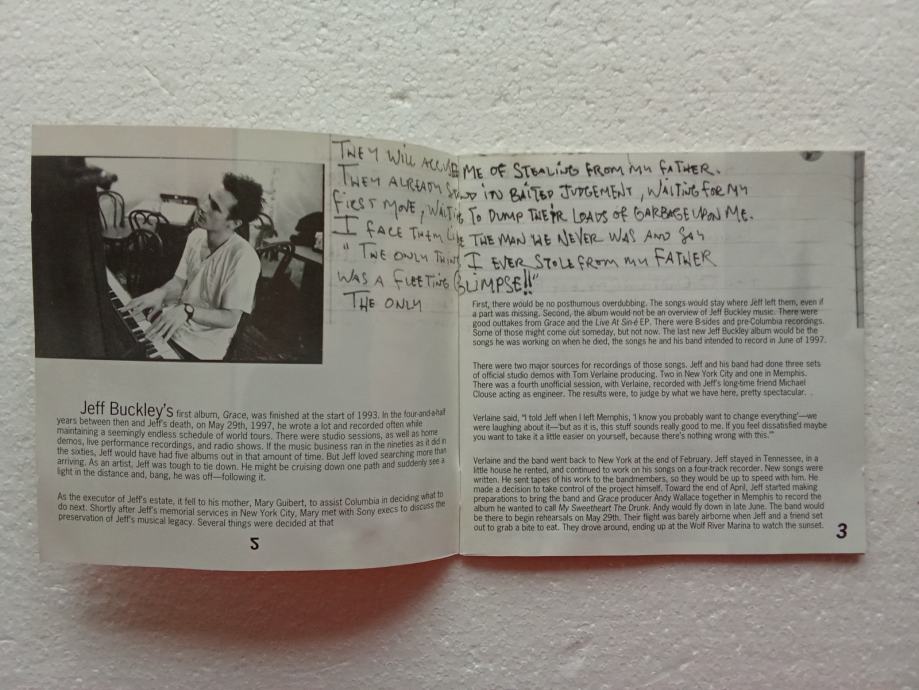 THEY WILL ACCUSE ME OF STEALING FROM MY FATHER.
THEY ALREADY STAND IN BAITED JUDGEMENT, WAITING FOR MY
FIRST MOVE, WAITING TO DUMP THEIR LOADS OF GARBAGE UPON ME.
I FACE THEM LIKE THE MAN HE NEVER WAS AND SAY
" THE ONLY THING I EVER STOLE FROM MY FATHER
WAS A FLEETING GLIMPSE!!"
THE ONLY
Jeff Buckley's first album, Grace, was finished at the start of 1993. In the four-and-a-half
years between then and Jeff's death, on May 29th, 1997, he wrote a lot and recorded often while
maintaining a seemingly endless schedule of world tours. There were studio sessions, as well as home
demos, live performance recordings, and radio shows. If the music business ran in the nineties as it did in
the sixties, Jeff would have had five albums out in that amount of time. But Jeff loved searching more than
arriving. As an artist, Jeff was tough to tie down. He might be cruising down one path and suddenly see a
light in the distance and, bang, he was off—following it.
As the executor of Jeff's estate, it fell to his mother, Mary Guibert, to assist Columbia in deciding what to
do next. Shortly after Jeff's memorial services in New York City, Mary met with Sony execs to discuss the
preservation of Jeff's musical legacy. Several things were decided at that
2
First, there would be no posthumous overdubbing. The songs would stay where Jeff left them, even if
a part was missing. Second, the album would not be an overview of Jeff Buckley music. There were
good outtakes from Grace and the Live At Sin-é EP. There were B-sides and pre-Columbia recordings.
Some of those might come out someday, but not now. The last new Jeff Buckley album would be the
songs he was working on when he died, the songs he and his band intended to record in June of 1997.
There were two major sources for recordings of those songs. Jeff and his band had done three sets
of official studio demos with Tom Verlaine producing. Two in New York City and one in Memphis.
There was a fourth unofficial session, with Verlaine, recorded with Jeff's long-time friend Michael
Clouse acting as engineer. The results were, to judge by what we have here, pretty spectacular.
Verlaine said, "I told Jeff when I left Memphis, 'I know you probably want to change everything'—we
were laughing about it—'but as it is, this stuff sounds really good to me. If you feel dissatisfied maybe
you want to take it a little easier on yourself, because there's nothing wrong with this.'"
Verlaine and the band went back to New York at the end of February. Jeff stayed in Tennessee, in a
little house he rented, and continued to work on his songs on a four-track recorder. New songs were
written. He sent tapes of his work to the bandmembers, so they would be up to speed with him. He
made a decision to take control of the project himself. Toward the end of April, Jeff started making
preparations to bring the band and Grace producer Andy Wallace together in Memphis to record the
album he wanted to call My Sweetheart The Drunk. Andy would fly down in late June. The band would
be there to begin rehearsals on May 29th. Their flight was barely airborne when Jeff and a friend set
out to grab a bite to eat. They drove around, ending up at the Wolf River Marina to watch the sunset.
3